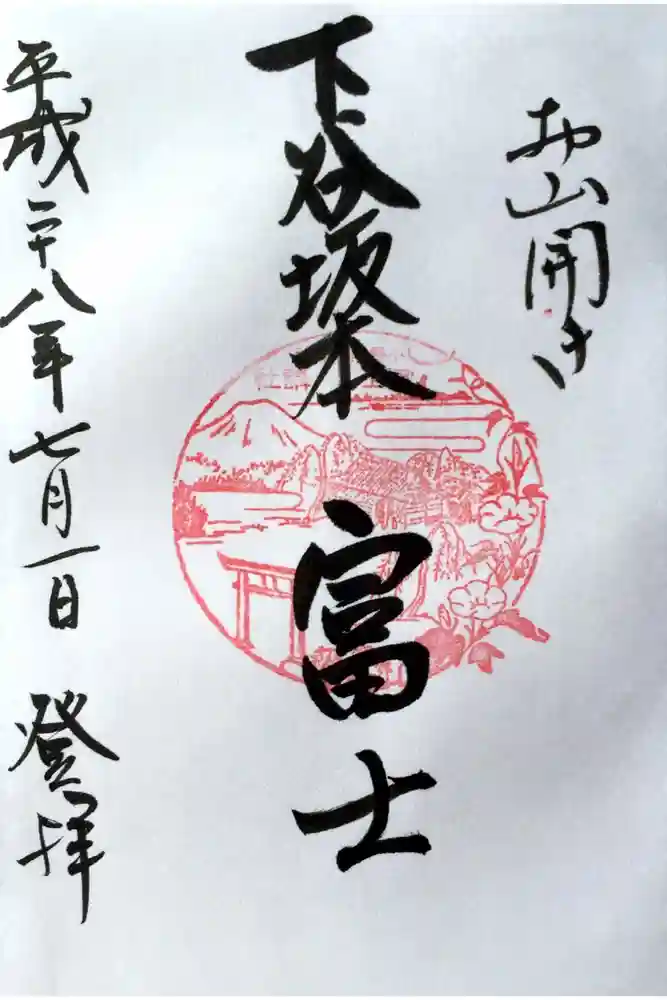 お山開き
下谷坂本富士
平成二十八年七月一日登拝